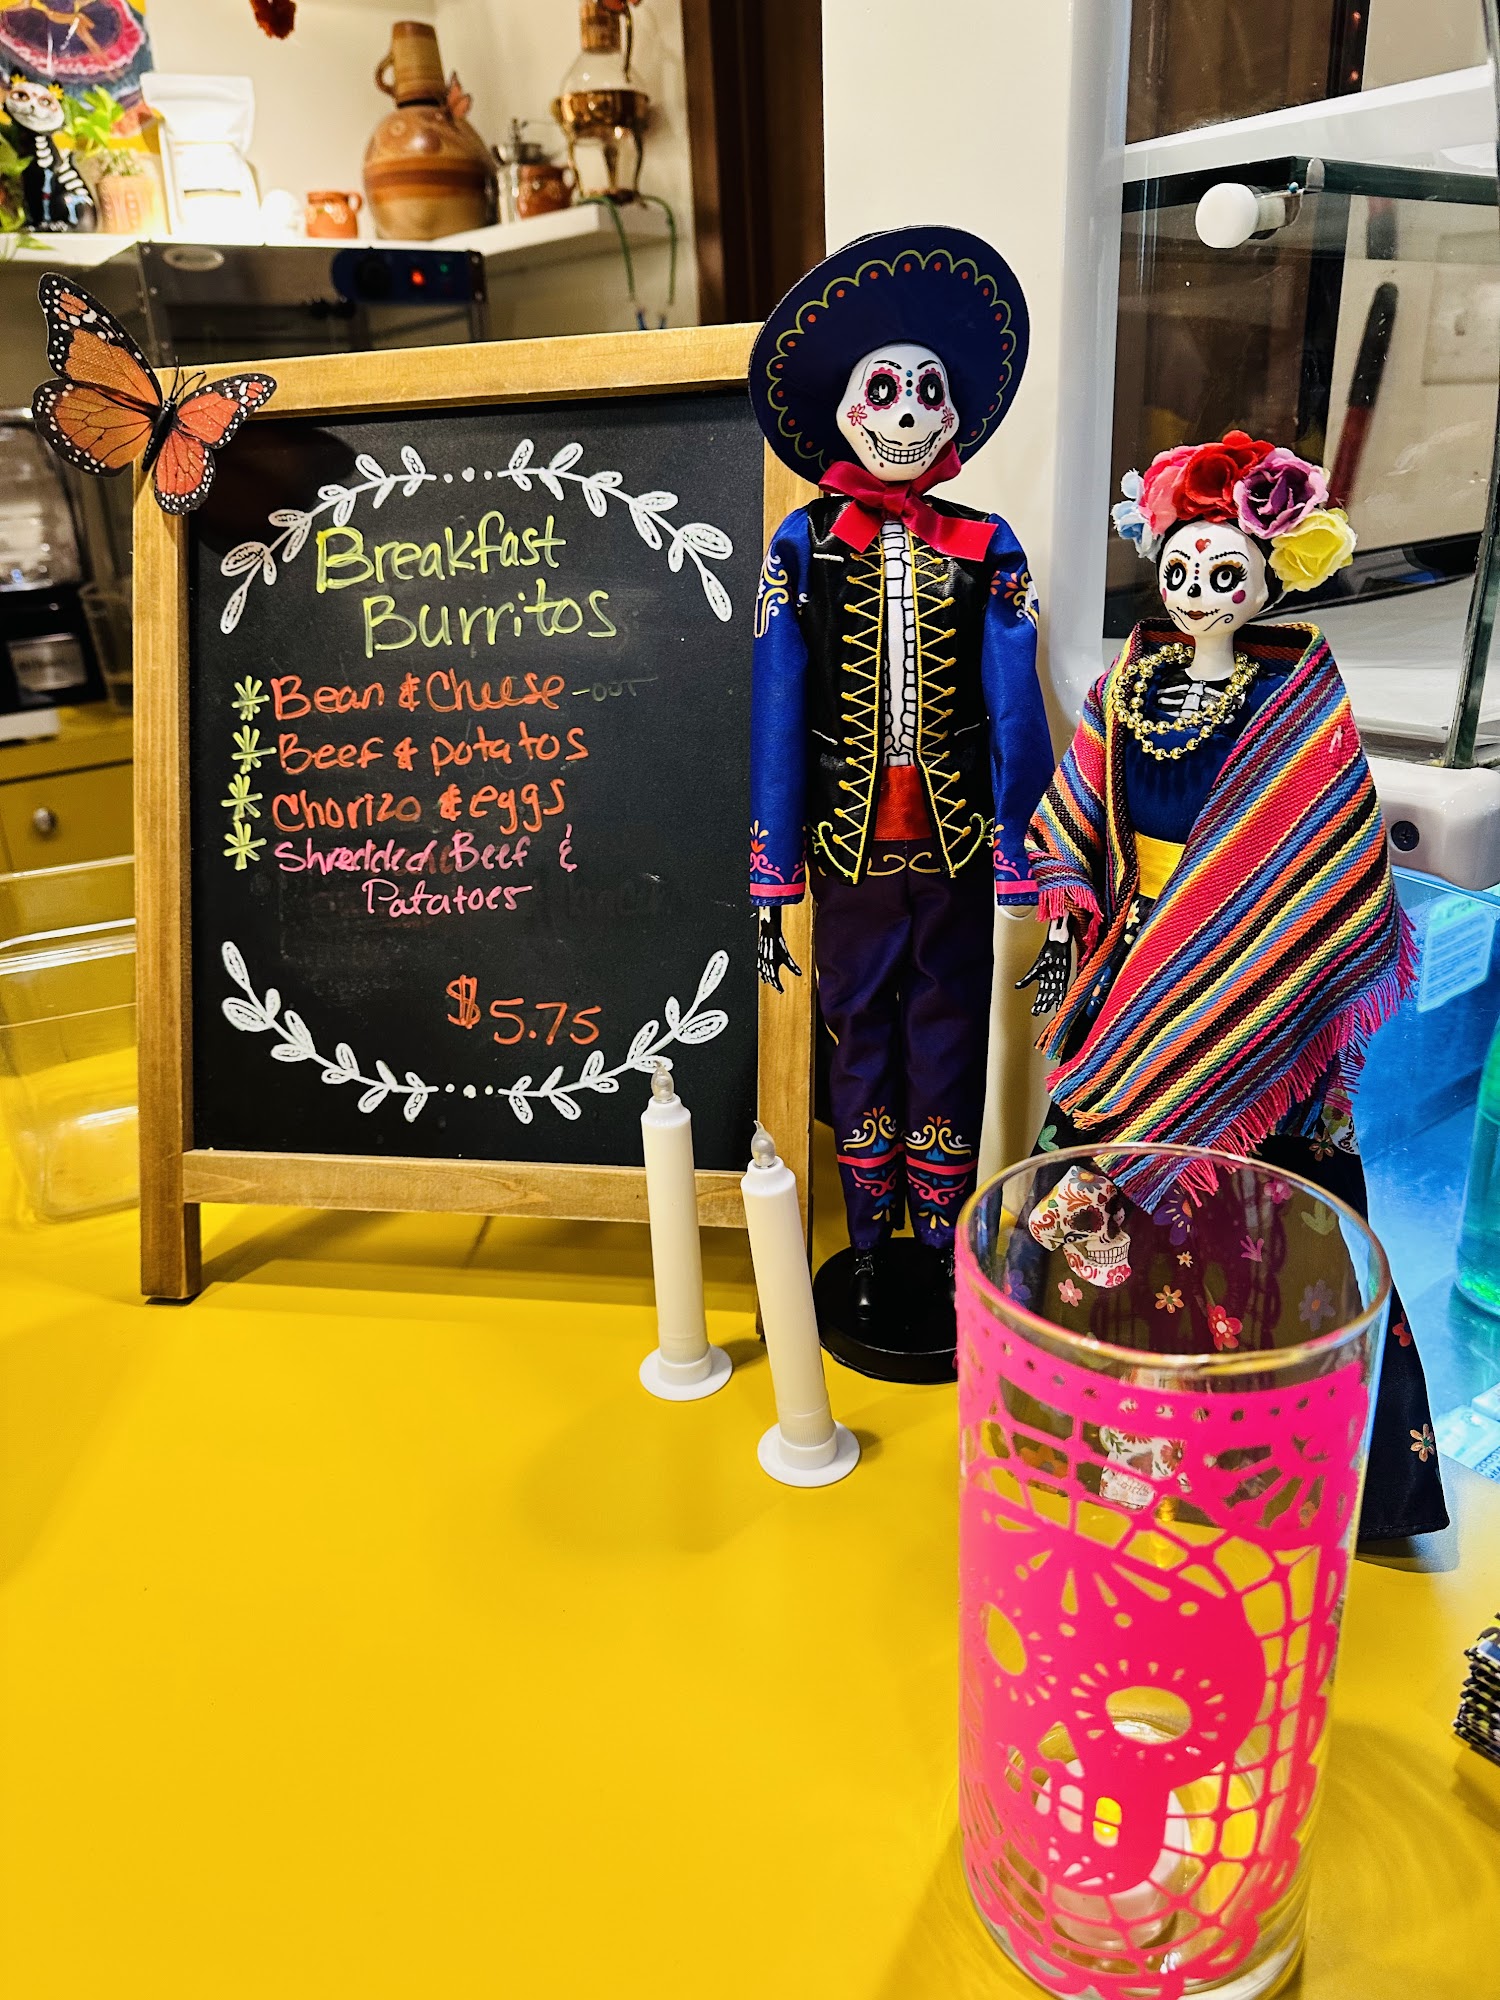 Breakfast
Burritos
* Bean & Cheese -out
* Beef & potatos
* Chorizo & eggs
* Shredded Beef &
Patatoes
$5.75